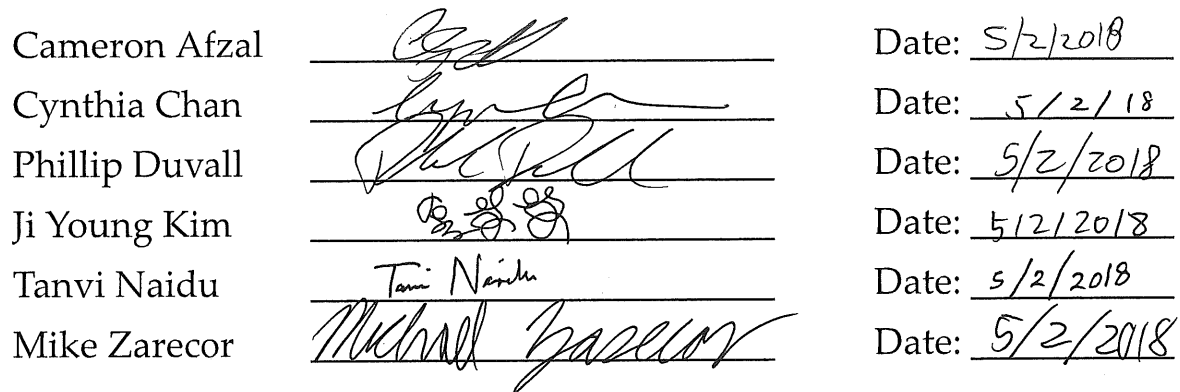 Cameron Afzal Date: 5/2/2018
Cynthia Chan Date: 5/2/18
Phillip Duvall Phil Duvall Date: 5/2/2018
Ji Young Kim Date: 5/2/2018
Tanvi Naidu Tanvi Naidu Date: 5/2/2018
Mike Zarecor Michael Zarecor Date: 5/2/2018